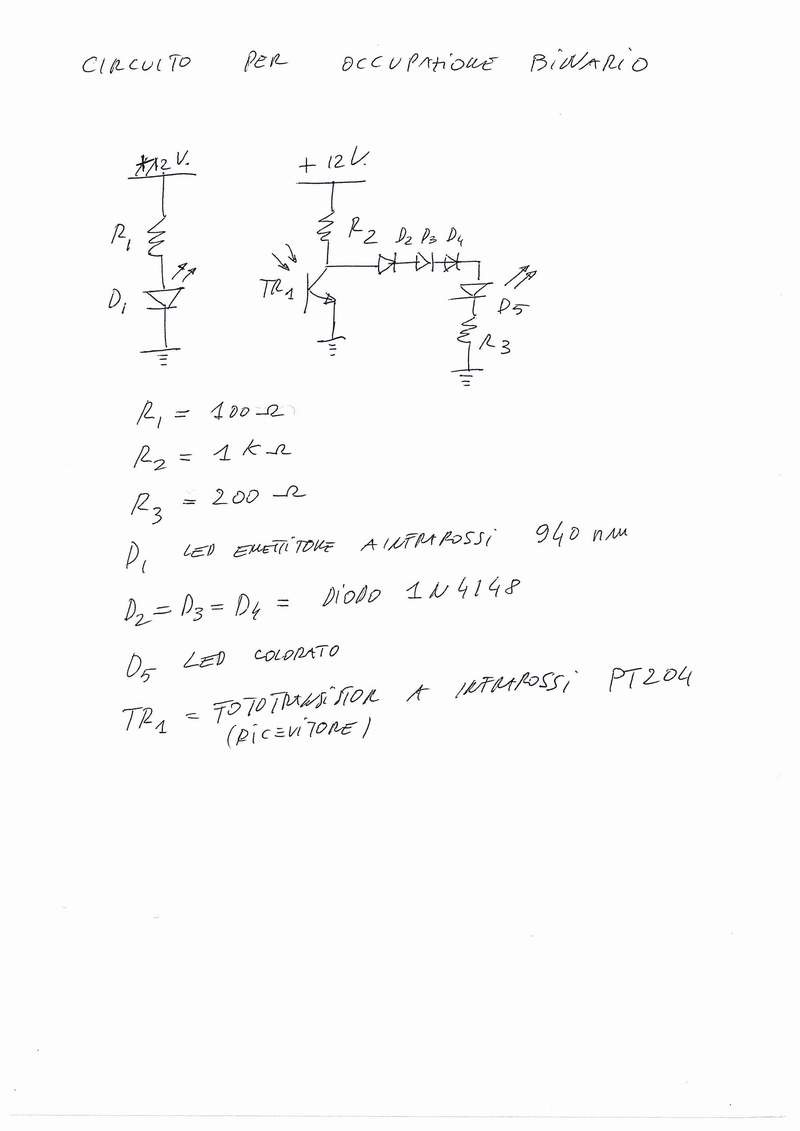 CIRCUITO PER OCCUPAZIONE BINARIO
+12V.
+12V.
R1
R2
D2 D3 D4
TR1
D1
D5
R3
R1 = 100 Ω
R2 = 1 KΩ
R3 = 200 Ω
D1 LED EMETTITORE A INFRAROSSI 940 nm
D2 = D3 = D4 = DIODO 1N4148
D5 LED COLORATO
TR1 = FOTOTRANSISTOR A INFRAROSSI PT204
(RICEVITORE)